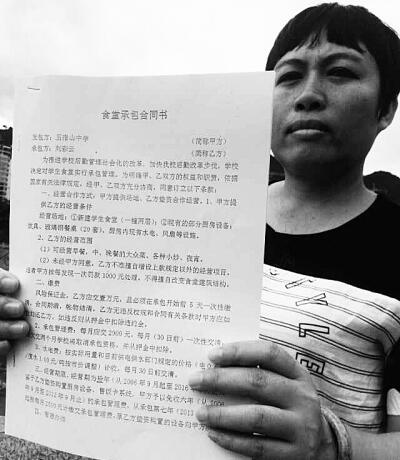 食堂承包合同书
发包方：五指山中学 （简称甲方）
承包方：刘彩云 （简称乙方）
为推进学校后勤管理社会化的改革，加快我校后勤改革步伐，学校
决定对学生食堂实行承包管理。为明确甲、乙双方的权益和职责，依据
国家有关法律规定，经甲、乙双方充分协商，同意订立以下条款：
一、经营合作方式：甲方提供场地，乙方垫资合作经营。1、甲方提
供乙方的经营条件
经营场地：①新建学生食堂（一幢两层）；②现有的部分厨房设备；
炊具、玻璃钢餐桌（20套），厨房内现有水电、风扇等设施。
2、乙方的经营范围
（1）可经营早餐，中、晚餐的大众菜、各种小炒、夜宵。
（2）未经甲方同意，乙方不准擅自增设上款规定以外的经营项目，
违者甲方按每发现一次罚款1000元处理，不得擅自改变食堂建筑结构。
二、缴费
风险保证金。乙方应交壹万元，且必须在承包开始前5天一次性缴
合同期满，帐物结清，乙方无违反校规和合同有关条款时甲方应
如数退还乙方，如违反则从押金中扣除违约金。
2、承包管理费：每月应交2900元，每月30日前一次性交清，
个月学校将取消承包资格，并从押金中扣除。
3、水电费：按实际用量和目前供电供水部门规定的价格（电
1.60元/吨按市价调整）计收，每月30日前交清。
三、经营期限，经营期为拾年（从2006年9月起至2016